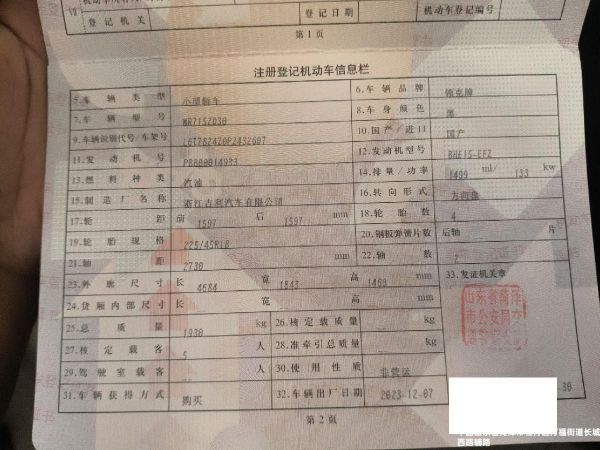 登记机关
登记日期
机动车登记编号
第1页
注册登记机动车信息栏
5.车辆类型 小型轿车 6.车辆品牌 领克牌
7.车辆型号 MR7152D30 8.车身颜色 黑
9.车辆识别代号/车架号 10.国产/进口 国产
11.发动机号 12.发动机型号 BHE15-EFZ
13.燃料种类 汽油 14.排量/功率 1499 ml/ 133 kw
15.制造厂名称 浙江吉利汽车有限公司 16.转向形式 方向盘
17.轮距 前 1597 后 1597 mm 18.轮胎数 4
19.轮胎规格 225/45R18 20.钢板弹簧片数 后轴 片
21.轴距 2730 mm 22.轴数 2
23.外廓尺寸 长 4684 宽 1843 高 1460 mm 33.发证机关章
24.货厢内部尺寸 长 宽 高 mm
25.总质量 1930 kg 26.核定载质量 kg
27.核定载客 5 人 28.准牵引总质量 kg
29.驾驶室载客 人 30.使用性质 非营运
31.车辆获得方式 购买 32.车辆出厂日期 2023-12-07
第2页
福街道长城
西路辅路